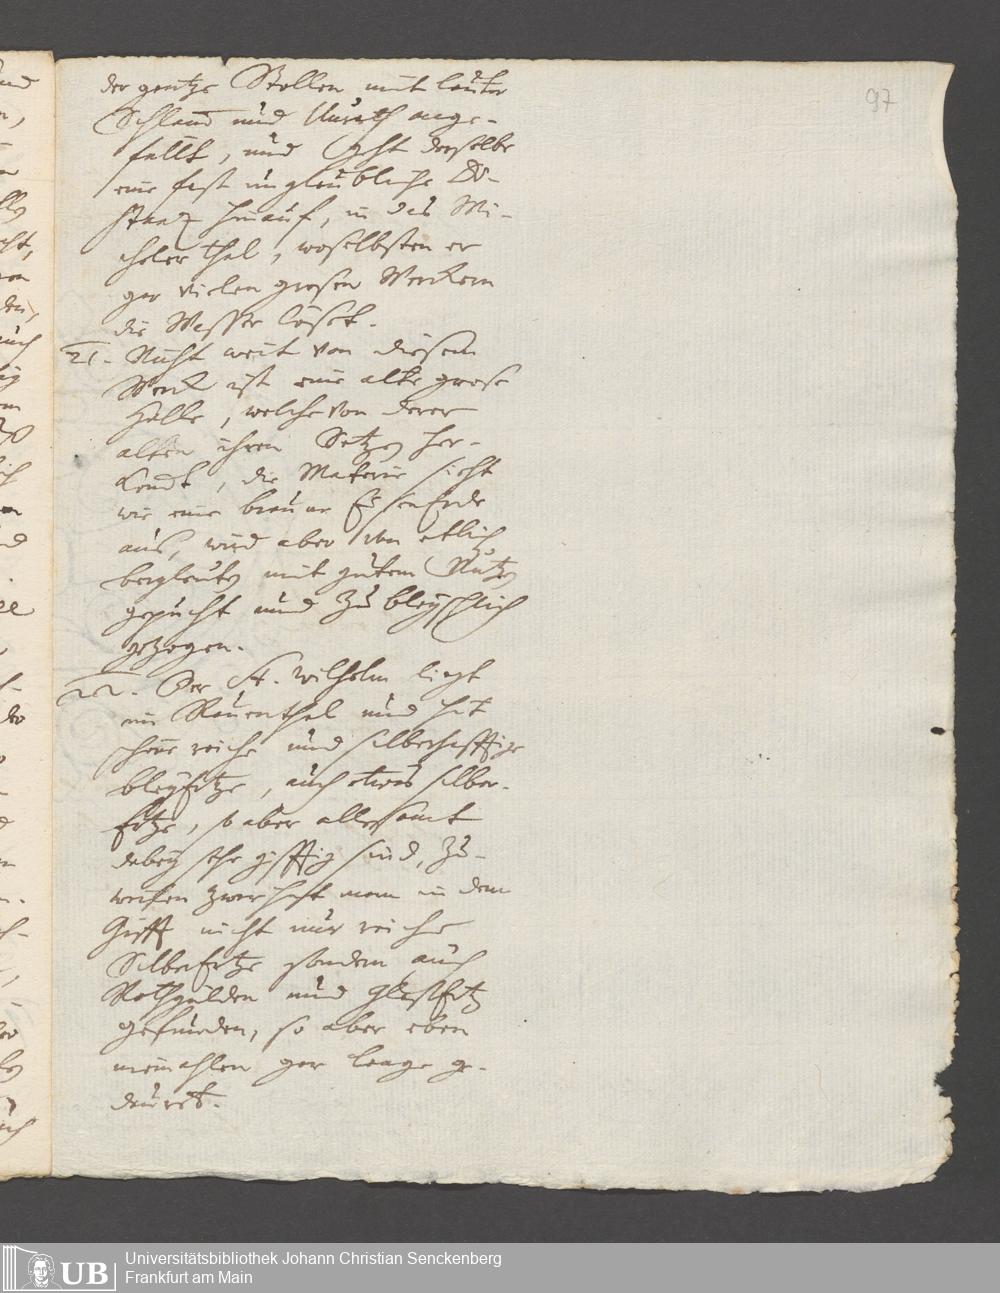 97
der gantze Stollen mit lauter
Schlam und Unrath ange-
füllt, und geht derselbe
eine fast unglaubliche Di-
stanz hinauf, in das Mi-
cheler Thal, woselbsten er
gar vielen grosen Wercken
die Wasser löset.
21. Nicht weit von diesem
Werck ist eine alte grose
Halle, welche von derer
alten ihren Setzen her-
, die Materie sieht
wie eine braune EisenErde
aus, wird aber von etlich
bergleuten mit gutem Nutzen
gepucht und zu bleyschlich
gezogen.
22. Der St. Wilhelm liegt
im Rauenthal und hat
schöne reiche und silberhafftige
bleyErtze, auch etwas silber-
Ertze, so aber allesamt
dabey sehr gifftig sind, zu-
weilen zwar hat man in dem
Gifft nicht nur reiche
SilberErtze sondern auch
Rothgülden und GlasErtz
gefunden, so aber eben
niemahlen gar lange ge-
dauret.
UB
Universitätsbibliothek Johann Christian Senckenberg
Frankfurt am Main